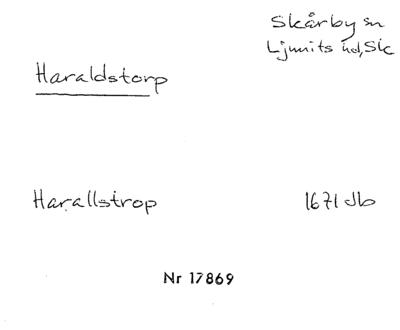 Skårby sn
Ljunits hd, Sk
Haraldstorp
Harallstrop 1671 Jb
Nr 17869